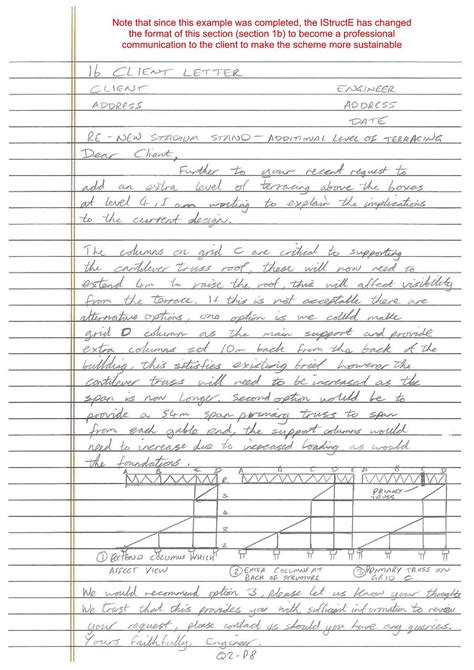 Note that since this example was completed, the IStructE has changed
the format of this section (section 1b) to become a professional
communication to the client to make the scheme more sustainable
1b CLIENT LETTER
CLIENT ENGINEER
ADDRESS ADDRESS
DATE
RE - NEW STADIUM STAND - ADDITIONAL LEVEL OF TERRACING
Dear Client,
Further to your recent request to
add an extra level of terracing above the boxes
at level 4, I am writing to explain the implications
to the current design.
The columns on grid C are critical to supporting
the cantilever truss roof, these will now need to
extend 4m to raise the roof, this will affect visibility
from the terrace. If this is not acceptable there are
alternative options, one option is we could make
grid D column as the main support and provide
extra columns set 10m back from the back of the
building, this satisfies existing brief however the
cantilever truss will need to be increased as the
span is now longer. Second option would be to
provide a 54m span primary truss to span
from each gable end, the support columns would
need to increase due to increased loading as would
the foundations.
A B C D R A B C D E A B C D
PRIMARY
TRUSS
① EXTEND COLUMNS WHICH
AFFECT VIEW
② EXTRA COLUMNS AT
BACK OF STRUCTURE
③ PRIMARY TRUSS ON
GRID C
We would recommend option 3, please let us know your thoughts
We trust that this provides you with sufficient information to review
your request, please contact us should you have any queries.
Yours faithfully, Engineer.
Q2-P8